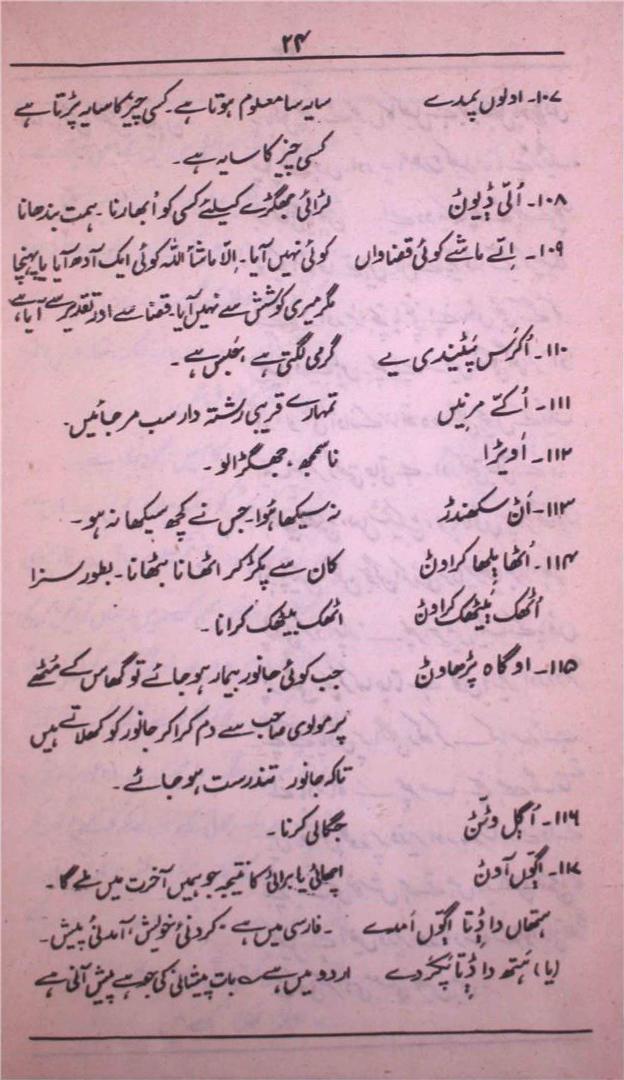 ۲۴
۱۰۷۔ اولوں پمدے سایہ سا معلوم ہوتا ہے۔ کسی چیز کا سایہ پڑتا ہے
کسی چیز کا سایہ ہے۔
۱۰۸۔ اُتی ڈیوݨ لڑائی جھگڑے کیلئے کسی کو اُبھارنا۔ ہمت بندھانا
۱۰۹۔ اِتے ماشے کوئی قضاواں کوئی نہیں آیا۔ اِلّا ماشأ اللہ کوئی ایک آدھ آیا یا پہنچا
مگر میری کوشش سے نہیں آیا۔ قضأ سے اور تقدیر سے آیا ہے
۱۱۰۔ اُکرُس پٹیندی ہے گرمی لگتی ہے، حُبس ہے۔
۱۱۱۔ اُکتے مرنیں تمہارے قریبی رشتہ دار سب مر جائیں۔
۱۱۲۔ اُویڑا ناسمجھ، جھگڑالو۔
۱۱۳۔ اَݨ سکھندڑ نہ سیکھا ہُوا۔ جس نے کچھ سیکھا نہ ہو۔
۱۱۴۔ اُٹھا بِلھا کراوݨ کان سے پکڑ کر اٹھانا بٹھانا۔ بطور سزا
اُٹھک بَیٹھک کراوݨ اٹھک بیٹھک کرانا۔
۱۱۵۔ اوگاہ پڑھاوݨ جب کوئی جانور بیمار ہو جائے تو گھاس کے مُٹھے
پر مولوی صاحب سے دم کرا کر جانور کو کھلاتے ہیں
تاکہ جانور تندرست ہو جائے۔
۱۱۶۔ اُگل وٹݨ جگالی کرنا۔
۱۱۷۔ اڳوں آوݨ اچھائی یا برائی کا نتیجہ جو ہمیں آخرت میں ملے گا۔
ہتھاں دا ڈِتا اڳوں اَمدے ۔ فارسی میں ہے۔ کردنیٔ خویش، آمدنیٔ پیش۔
(یا) ہَتھ دا ڈِتا پکردے اردو میں ہے ؎ بات پیشانی کی جو ہے پیش آتی ہے